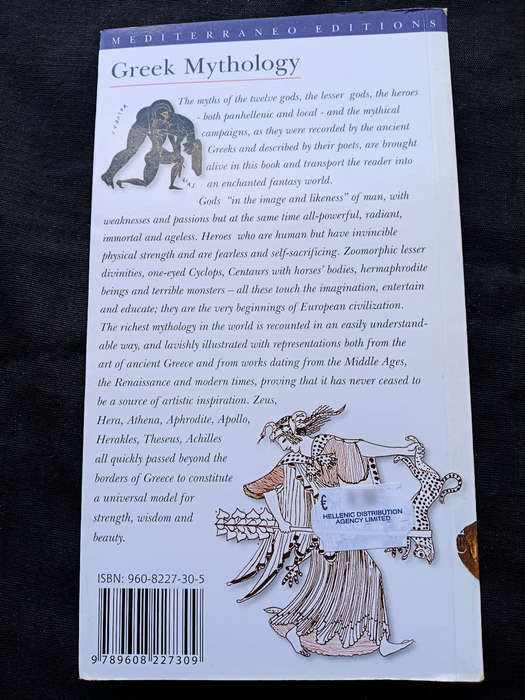 MEDITERRANEO EDITIONS
Greek Mythology
The myths of the twelve gods, the lesser gods, the heroes
- both panhellenic and local - and the mythical
campaigns, as they were recorded by the ancient
Greeks and described by their poets, are brought
alive in this book and transport the reader into
an enchanted fantasy world.
Gods "in the image and likeness" of man, with
weaknesses and passions but at the same time all-powerful, radiant,
immortal and ageless. Heroes who are human but have invincible
physical strength and are fearless and self-sacrificing. Zoomorphic lesser
divinities, one-eyed Cyclops, Centaurs with horses' bodies, hermaphrodite
beings and terrible monsters – all these touch the imagination, entertain
and educate; they are the very beginnings of European civilization.
The richest mythology in the world is recounted in an easily understand-
able way, and lavishly illustrated with representations both from the
art of ancient Greece and from works dating from the Middle Ages,
the Renaissance and modern times, proving that it has never ceased to
be a source of artistic inspiration. Zeus,
Hera, Athena, Aphrodite, Apollo,
Herakles, Theseus, Achilles
all quickly passed beyond the
borders of Greece to constitute
a universal model for
strength, wisdom and
beauty.
€
HELLENIC DISTRIBUTION
AGENCY LIMITED
ISBN: 960-8227-30-5
9 789608 227309